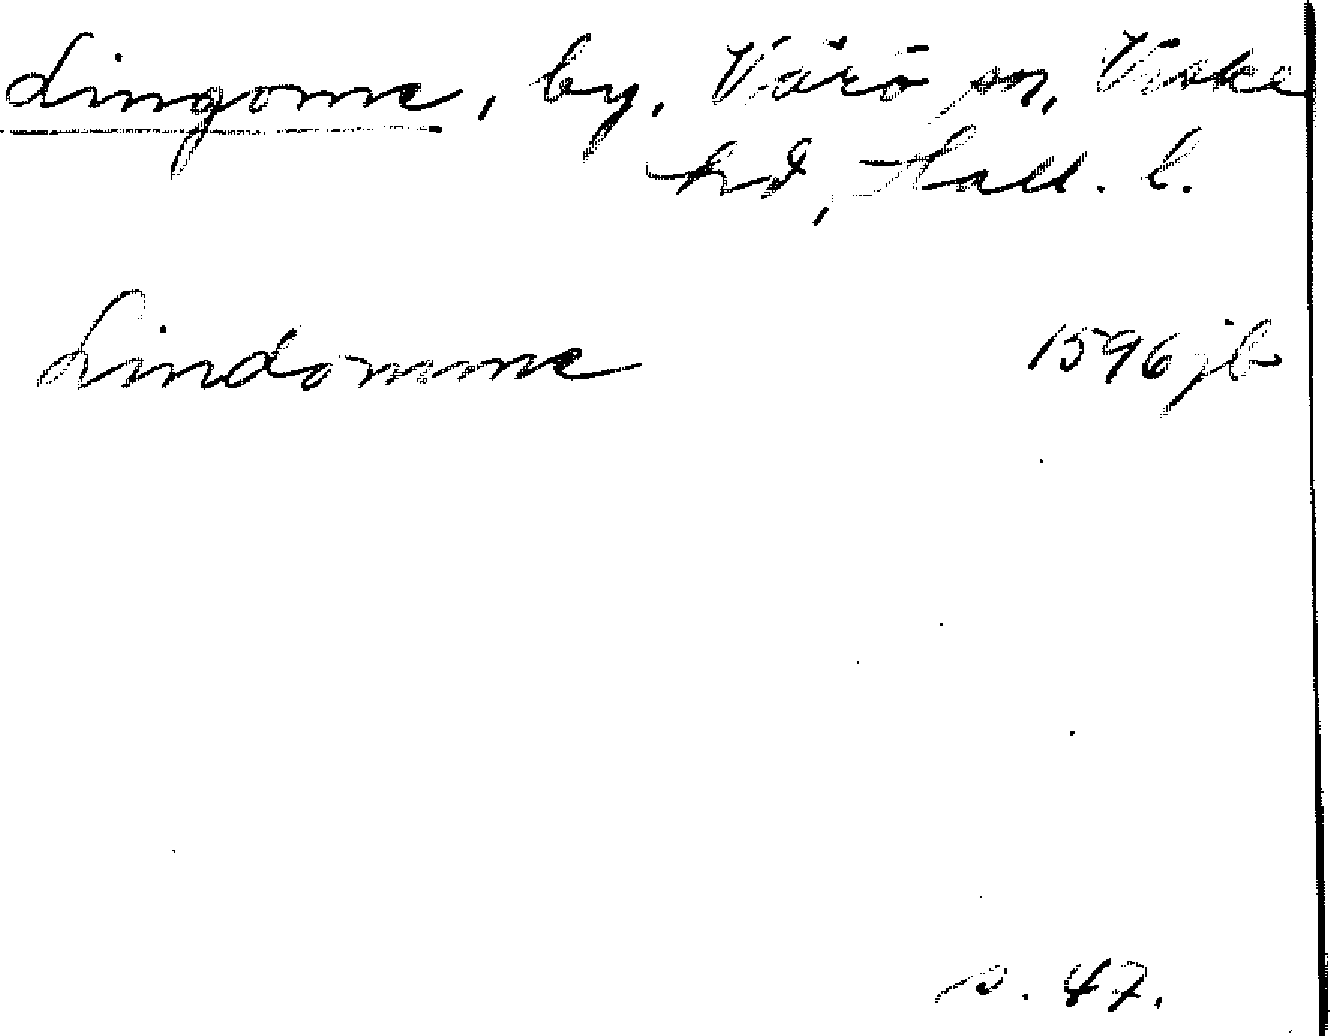 Lingome, by, Värö sn, Viske
hd, Hall. l.
Lindomme 1596 jb
s. 47.